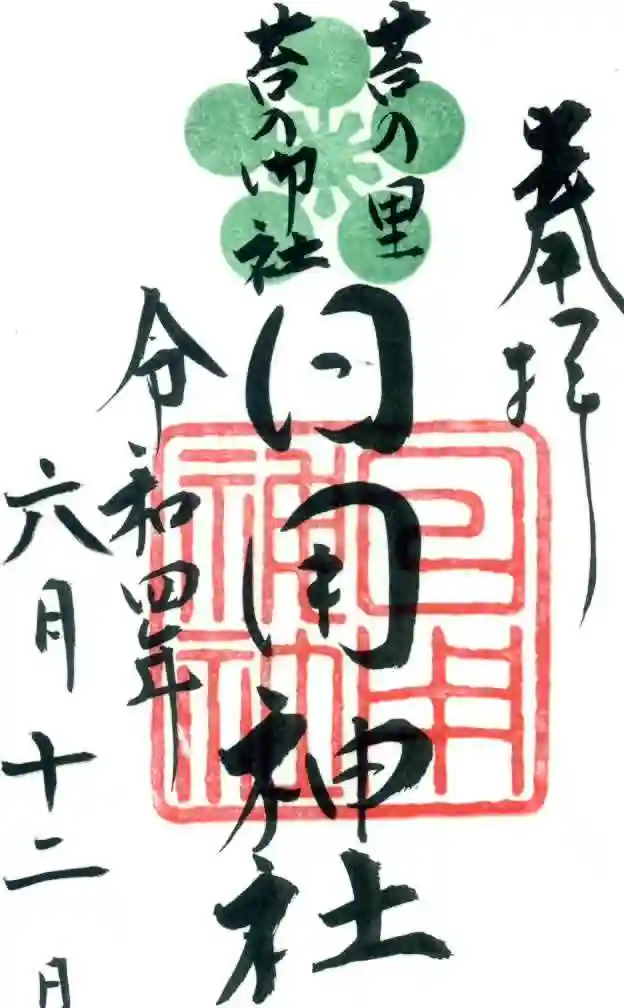 奉拝
苔の里
苔の御社
日用神社
日用神社
令和四年
六月十二日